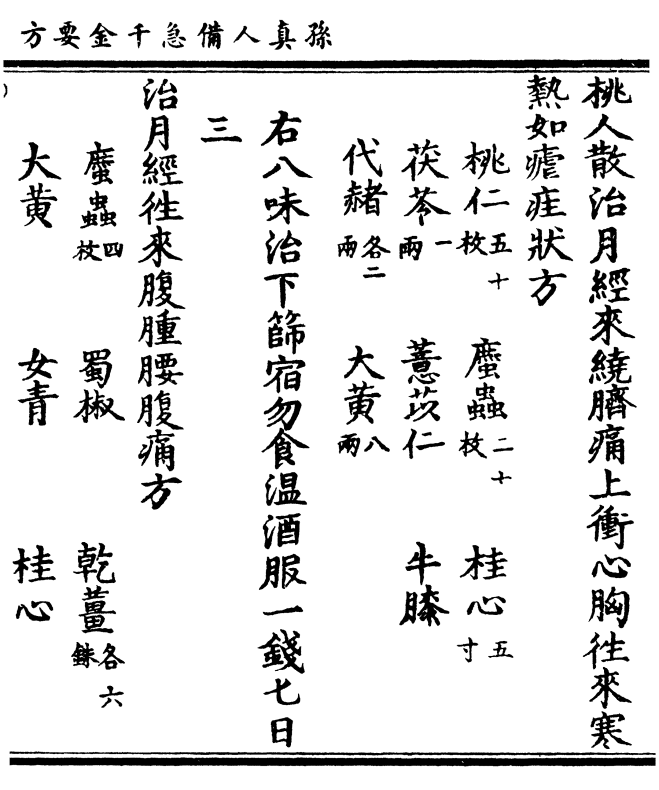 孫真人備急千金要方
桃人散治月經來繞臍痛上衝心胸往來寒
熱如瘧疰狀方
桃仁五十枚 䗪蟲二十枚 桂心五寸
茯苓一兩 薏苡仁 牛膝
代赭各二兩 大黄八兩
右八味治下篩宿勿食温酒服一錢七日
三
治月經往來腹腫腰腹痛方
䗪蟲四枚 蜀椒 乾薑各六銖
大黄 女青 桂心